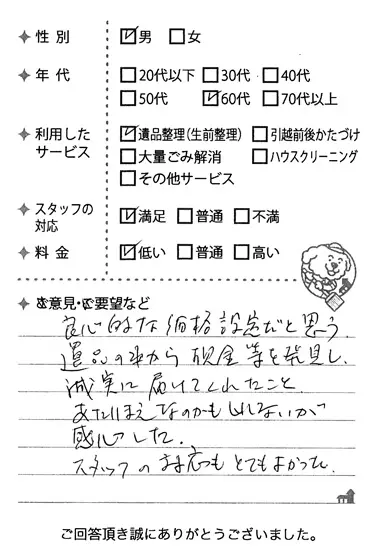 性別 ☑男 □女
年代 □20代以下 □30代 □40代
□50代 ☑60代 □70代以上
利用したサービス ☑遺品整理(生前整理) □引越前後かたづけ
□大量ごみ解消 □ハウスクリーニング
□その他サービス
スタッフの対応 ☑満足 □普通 □不満
料金 ☑低い □普通 □高い
ご意見・ご要望など
良心的な価格設定だと思う。
遺品の中から現金等を発見し、
誠実に届けてくれたこと
あたりまえなのかもしれないが
感心した。
スタッフの対応もとてもよかった。
ご回答頂き誠にありがとうございました。